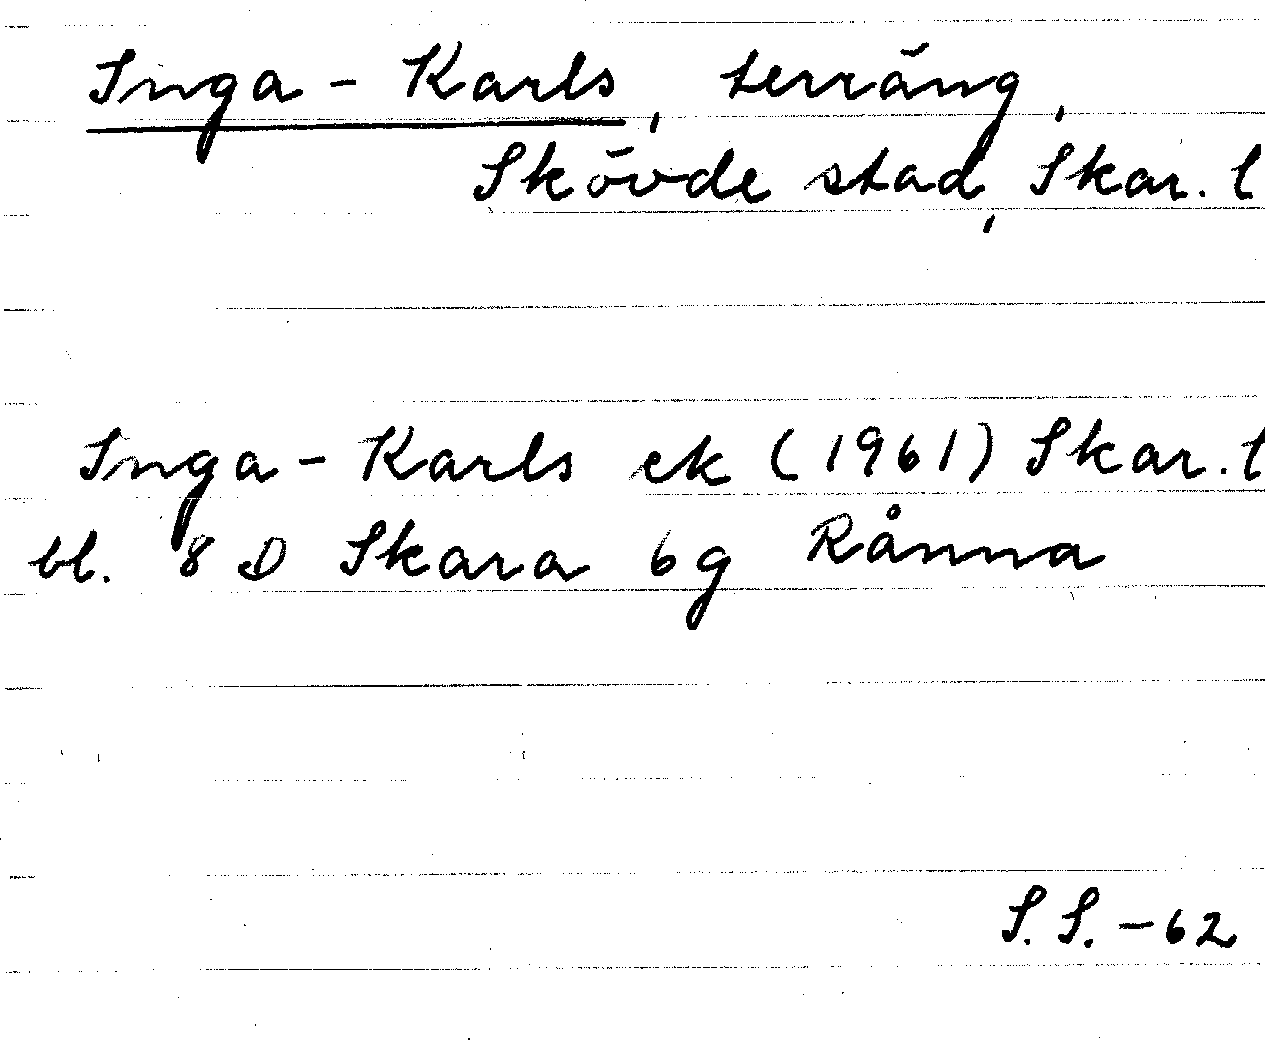 Inga-Karls, terräng,
Skövde stad, Skar. l
Inga-Karls ek (1961) Skar. l
bl. 8 D Skara 6g Rånna
S.S. -62